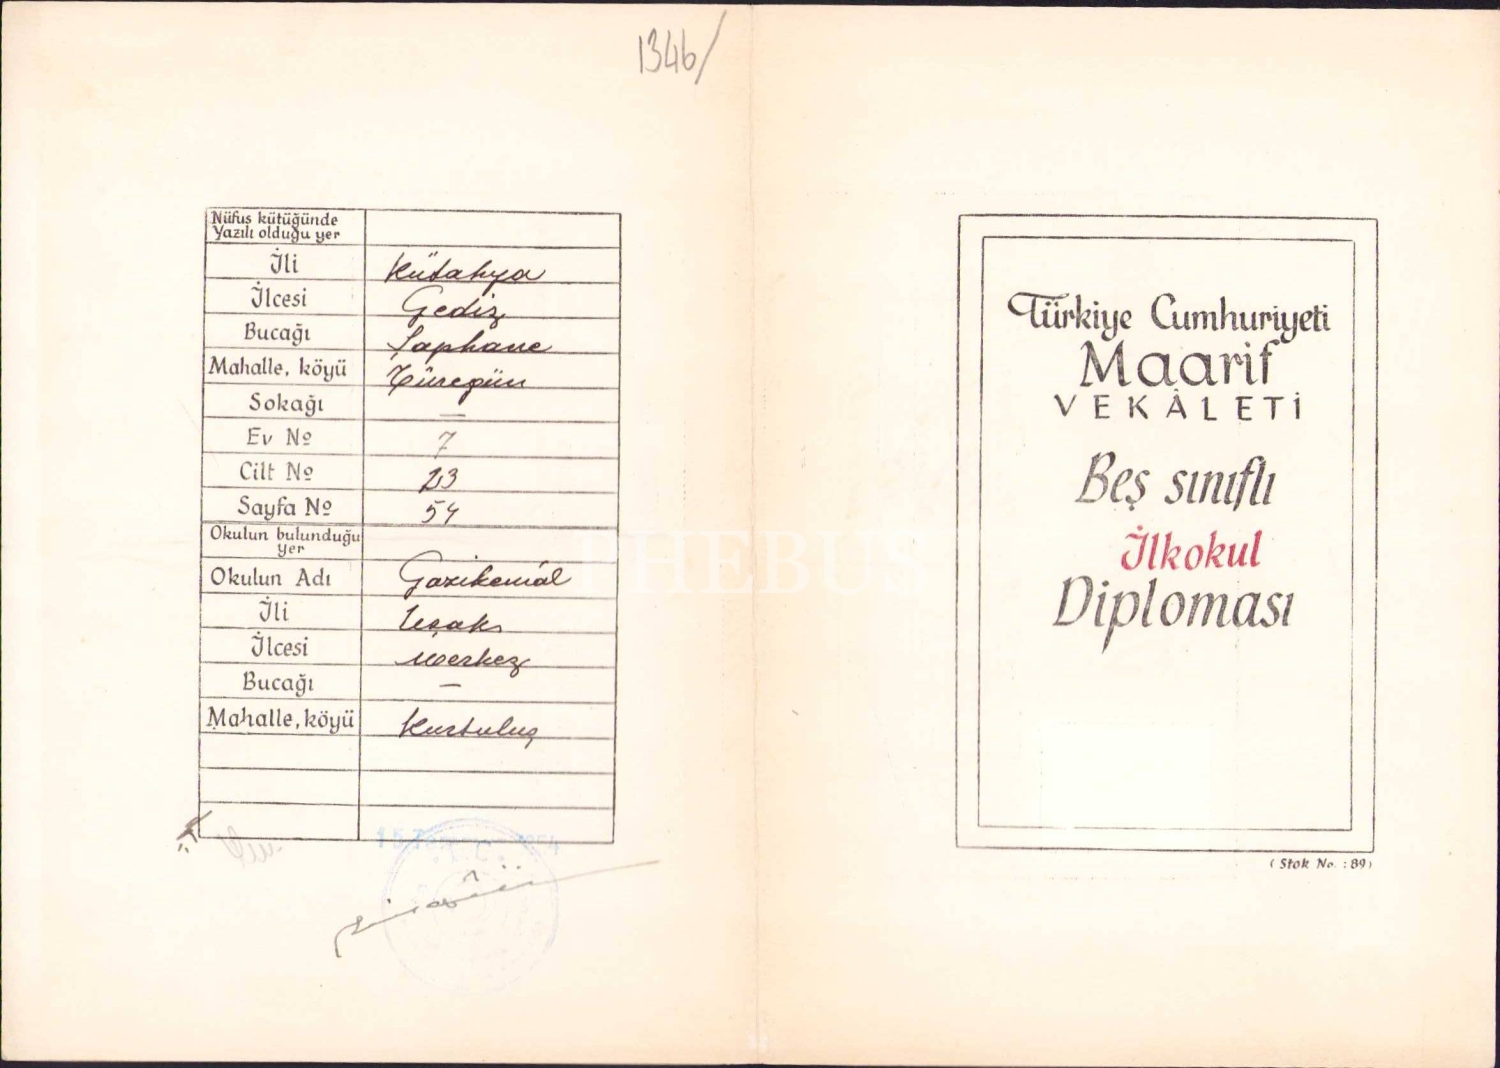 1346/
Nüfus kütüğünde
Yazılı olduğu yer
İli Kütahya
İlcesi Gediz
Bucağı Şaphane
Mahalle, köyü
Sokağı —
Ev No 7
Cilt No 23
Sayfa No 54
Okulun bulunduğu
yer
Okulun Adı Gazikemâl
İli Uşak
İlcesi Merkez
Bucağı —
Mahalle, köyü Kurtuluş
PHEBUS
Türkiye Cumhuriyeti
Maarif
VEKÂLETİ
Beş sınıflı
İlkokul
Diploması
( Stok No. : 89 )